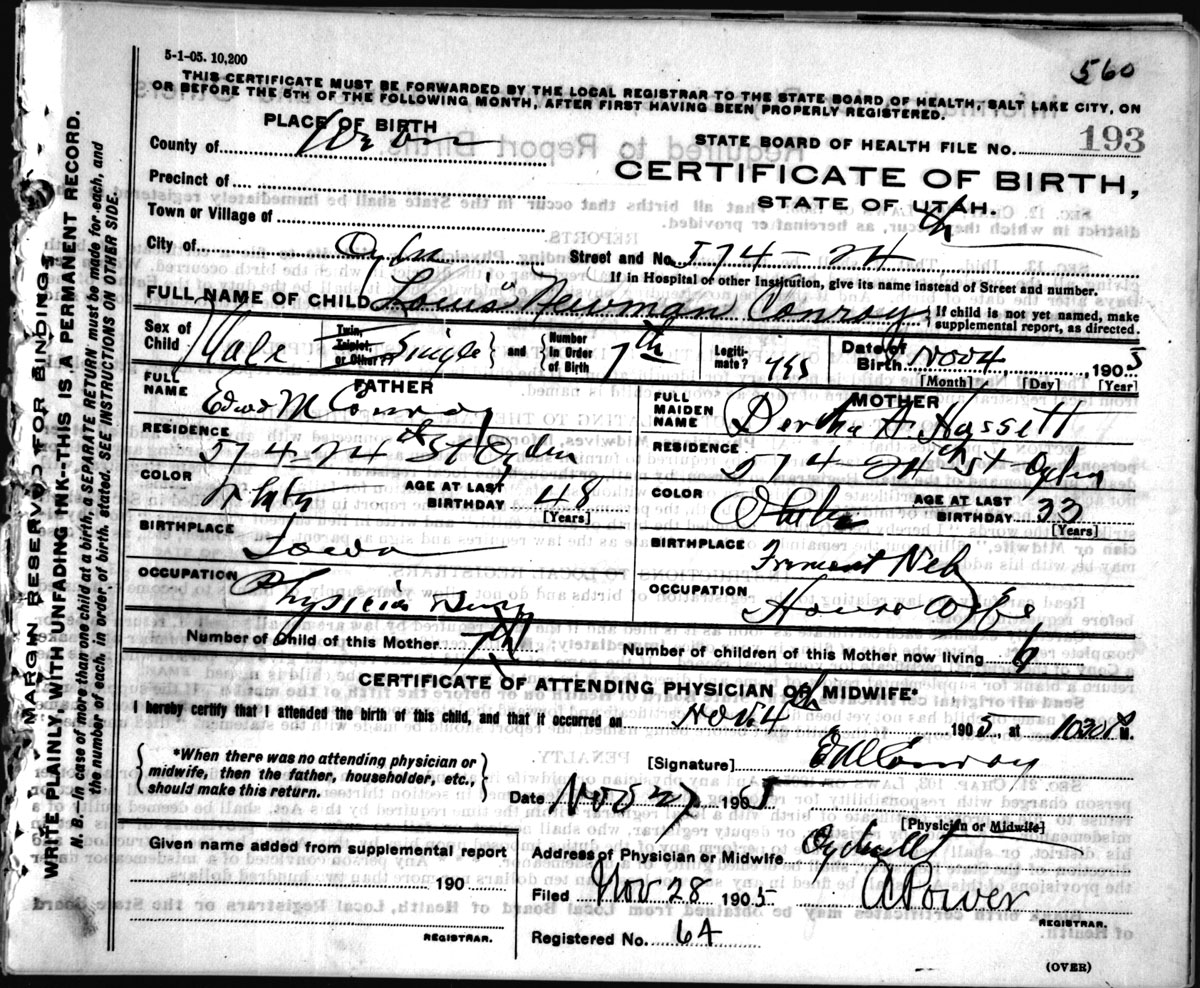 5-1-05. 10,200
560
THIS CERTIFICATE MUST BE FORWARDED BY THE LOCAL REGISTRAR TO THE STATE BOARD OF HEALTH, SALT LAKE CITY, ON
OR BEFORE THE 5TH OF THE FOLLOWING MONTH, AFTER FIRST HAVING BEEN PROPERLY REGISTERED.
PLACE OF BIRTH
STATE BOARD OF HEALTH FILE NO. 193
County of
CERTIFICATE OF BIRTH,
Precinct of
STATE OF UTAH.
Town or Village of
City of Ogden Street and No. 574-24th
If in Hospital or other Institution, give its name instead of Street and number.
FULL NAME OF CHILD Louis Newman Conroy { If child is not yet named, make supplemental report, as directed.
Sex of Child Male Twin, Triplet, or Other? Single and Number in Order of Birth 7th Legiti-mate? yes Date of Birth Nov 4, 1905
[Month] [Day] [Year]
FATHER
FULL NAME Edwd M Conroy
RESIDENCE 574-24th St Ogden
COLOR White AGE AT LAST BIRTHDAY 48
[Years]
BIRTHPLACE Iowa
OCCUPATION Physician
MOTHER
FULL MAIDEN NAME Bertha A Hassett
RESIDENCE 574-24th St Ogden
COLOR White AGE AT LAST BIRTHDAY 33
[Years]
BIRTHPLACE Fremont Neb
OCCUPATION House Wife
Number of Child of this Mother 7th Number of children of this Mother now living 6
CERTIFICATE OF ATTENDING PHYSICIAN OR MIDWIFE*
I hereby certify that I attended the birth of this child, and that it occurred on Nov. 4th 1905, at 1030 P M.
{ *When there was no attending physician or midwife, then the father, householder, etc., should make this return. }
[Signature] E M Conroy
Date Nov 27 1905
[Physician or Midwife]
Given name added from supplemental report
Address of Physician or Midwife
190
Filed Nov 28 1905 A Power
REGISTRAR.
REGISTRAR.
Registered No. 64
(OVER)
MARGIN RESERVED FOR BINDING.
WRITE PLAINLY WITH UNFADING INK--THIS IS A PERMANENT RECORD.
N. B.--In case of more than one child at a birth, a SEPARATE RETURN must be made for each, and
the number of each, in order of birth, stated. SEE INSTRUCTIONS ON OTHER SIDE.